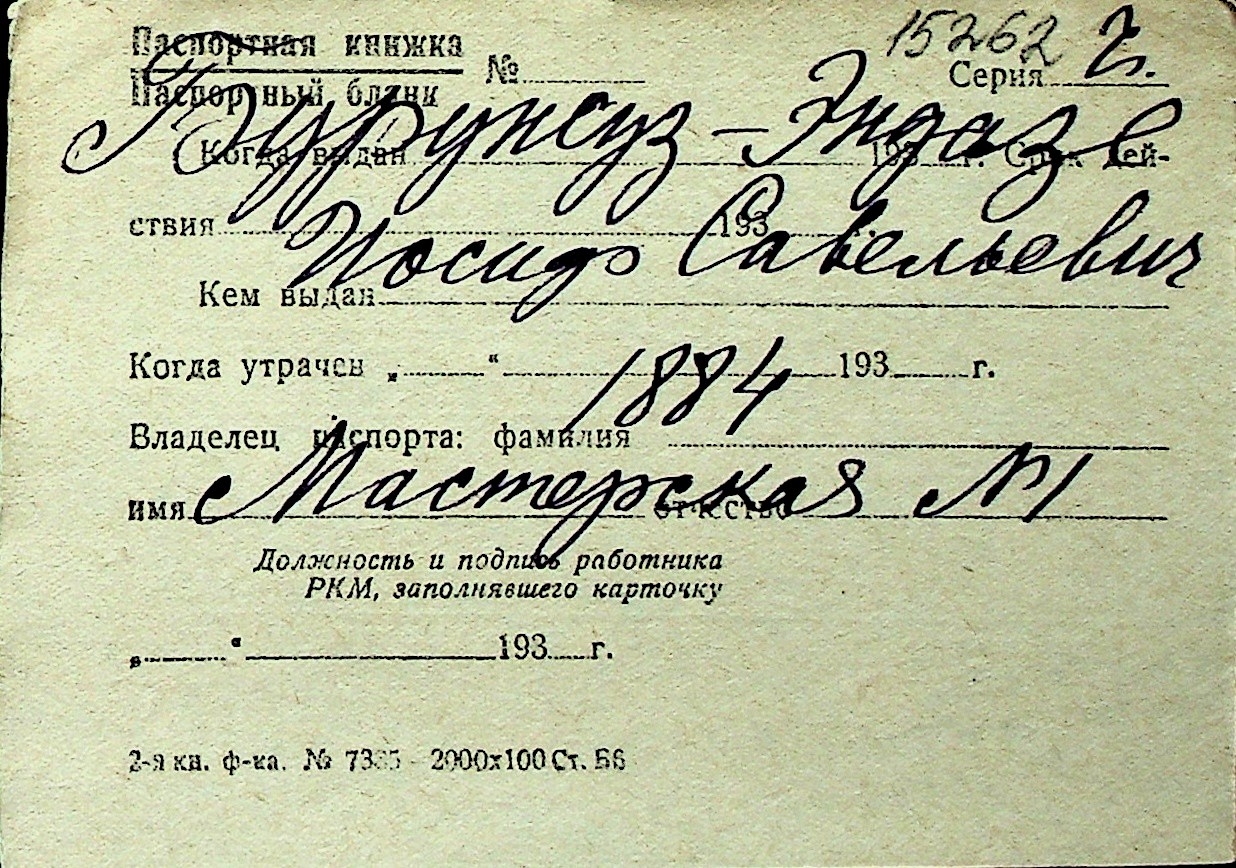 15262 г.
Паспортная книжка
Паспортный бланк № Серия
Бурунсуз-Эндазе
Когда выдан 193 г. Срок дей-
ствия 193
Иосиф Савельевич
Кем выдан
Когда утрачен „ “ 193 г.
1884
Владелец паспорта: фамилия
имя отчество
Мастерская №1
Должность и подпись работника
РКМ, заполнявшего карточку
„ “ 193 г.
2-я кн. ф-ка. № 2000х100 Ст. Б6